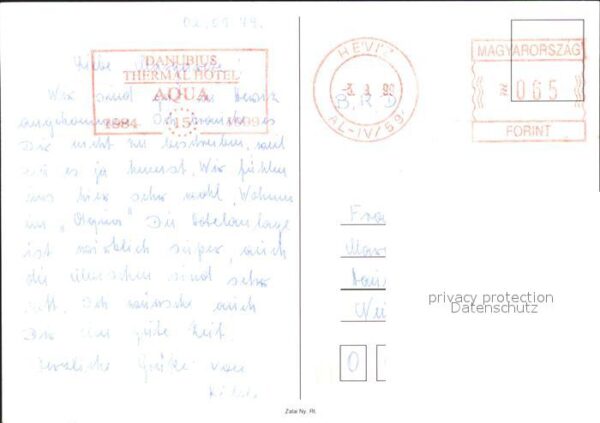 02.09.99.
Liebe
DANUBIUS
THERMAL HOTEL
AQUA
1984 15 1999
Wir sind gut in Heviz
angekommen. Ich brauche es
Dir nicht zu beschreiben, weil
du es ja kennst. Wir fühlen
uns hier sehr wohl. Wohnen
im „ “ Die Hotelanlage
ist wirklich super, auch
die Menschen sind sehr
nett. Ich wünsche auch
Dir eine gute Zeit.
Herzliche Grüße von
HEVIZ
B.R.D.
AL-IV/59
MAGYARORSZÁG
065
FORINT
Fra
Mar
Wei
0
privacy protection
Datenschutz
Zalai Ny. Rt.